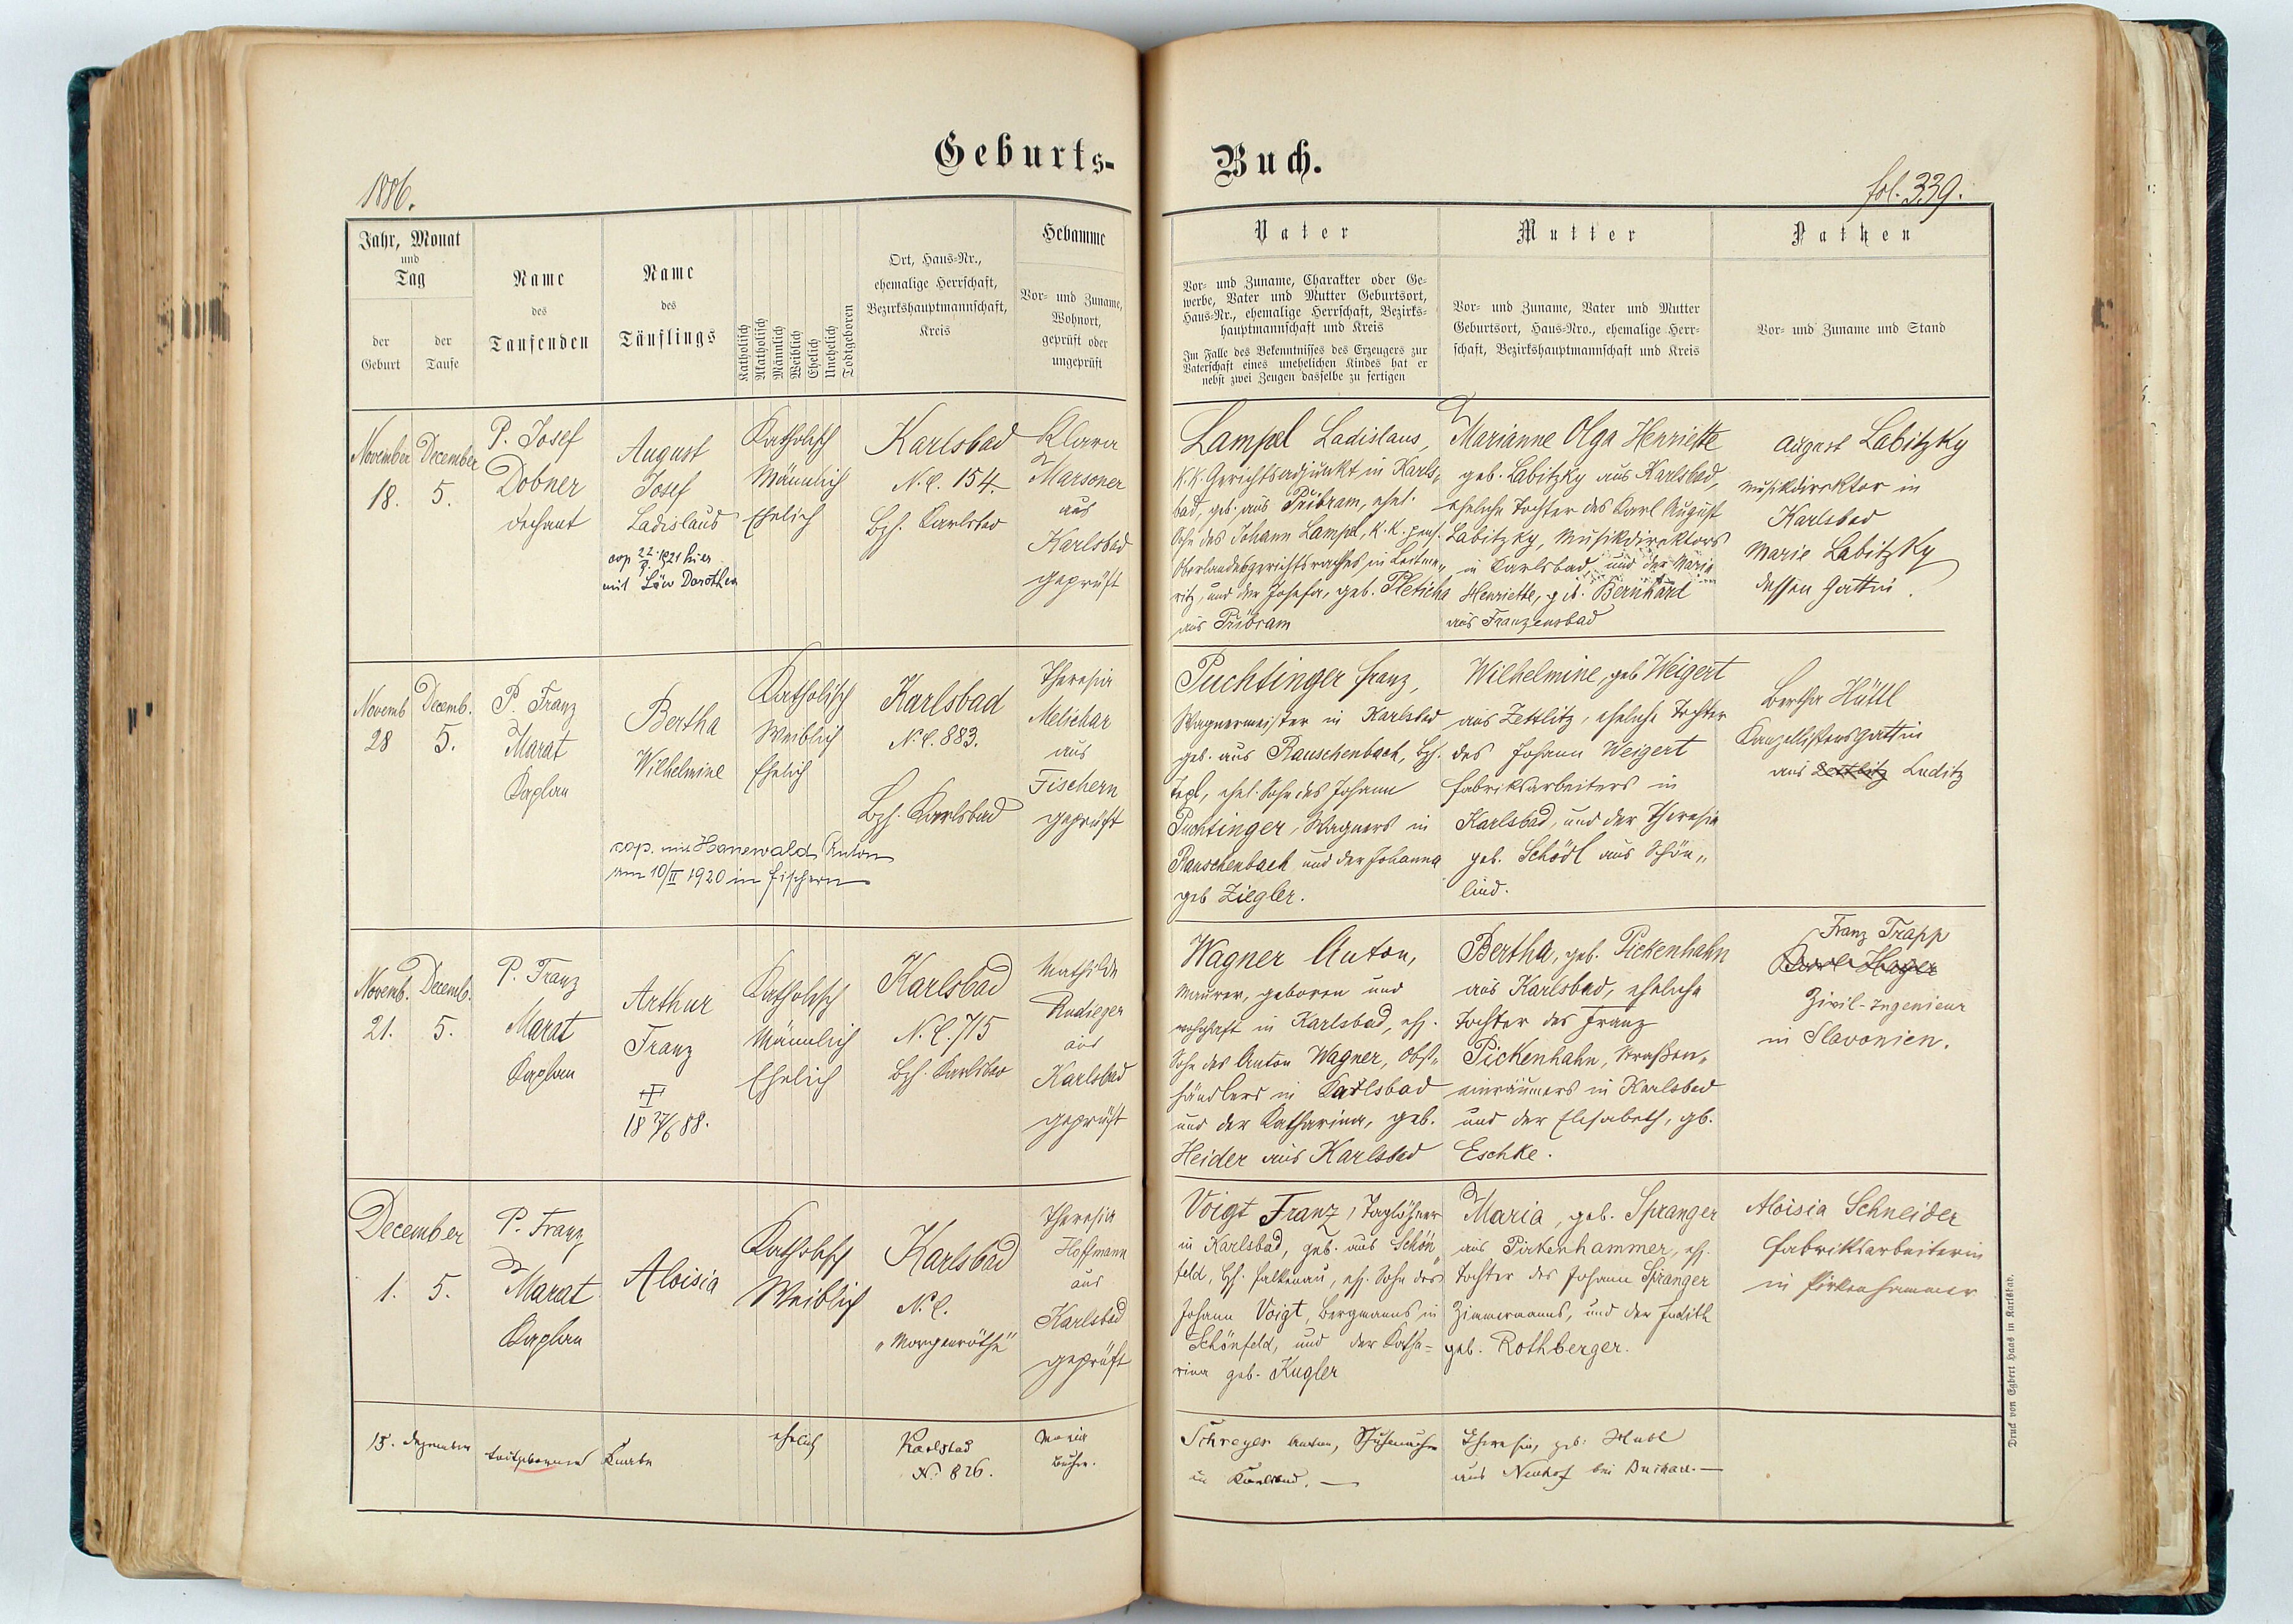 Geburts-
Buch.
1886.
fol. 339.
Jahr, Monat
und
Tag
der
Geburt
der
Taufe
Name
des
Taufenden
Name
des
Täuflings
Katholisch
Akatholisch
Männlich
Weiblich
Ehelich
Unehelich
Todtgeboren
Ort, Haus-Nr.,
ehemalige Herrschaft,
Bezirkshauptmannschaft,
Kreis
Hebamme
Vor- und Zuname,
Wohnort,
geprüft oder
ungeprüft
Vater
Vor- und Zuname, Charakter oder Ge-
werbe, Vater und Mutter Geburtsort,
Haus-Nr., ehemalige Herrschaft, Bezirks-
hauptmannschaft und Kreis
Im Falle des Bekenntnisses des Erzeugers zur
Vaterschaft eines unehelichen Kindes hat er
nebst zwei Zeugen dasselbe zu fertigen
Mutter
Vor- und Zuname, Vater und Mutter
Geburtsort, Haus-Nro., ehemalige Herr-
schaft, Bezirkshauptmannschaft und Kreis
Pathen
Vor- und Zuname und Stand
November
18.
December
5.
P. Josef
Dobner
Dechant
August
Josef
Ladislaus
cop 22. 1921 hier
mit Löw Dorothea
Katholisch
Männlich
Ehelich
Karlsbad
N.C. 154.
Bzh. Karlsbad
Klara
Marsoner
aus
Karlsbad
geprüft
Lampel Ladislaus,
k.k. Gerichtsadjunkt in Karls-
bad, geb. aus Pribram, ehel.
Sohn des Johann Lampel, k.k. pens.
Oberlandesgerichtsrathes in Leitme-
ritz, und der Josefa, geb. Pleticha
aus Pribram
Marianne Olga Henriette
geb. Labitzky aus Karlsbad,
eheliche Tochter des Karl August
Labitzky, Musikdirektors
in Karlsbad, und der Marie
Henriette, geb. Bernhart
aus Franzensbad
August Labitzky
Musikdirektor in
Karlsbad
Marie Labitzky
dessen Gattin.
Novemb
28
Decemb.
5.
P. Franz
Marat
Kaplan
Bertha
Wilhelmine
cop. mit Hanewald Anton
am 10/II 1920 in Fischern
Katholisch
Weiblich
Ehelich
Karlsbad
N.C. 883.
Bzh. Karlsbad
Theresia
Melichar
aus
Fischern
geprüft
Puchtinger Franz,
Wagnermeister in Karlsbad
geb. aus Rauschenbach, Bzh.
Tepl, ehel. Sohn des Johann
Puchtinger, Wagners in
Rauschenbach und der Johanna
geb Ziegler.
Wilhelmine, geb Weigert
aus Zettlitz, eheliche Tochter
des Johann Weigert
Fabriksarbeiters in
Karlsbad, und der Theresia
geb. Schödl aus Schön-
lind.
Bertha Hüttl
Kanzellistensgattin
aus Zettlitz Luditz
Novemb.
21.
Decemb.
5.
P. Franz
Marat
Kaplan
Arthur
Franz
18 27/6 88.
Katholisch
Männlich
Ehelich
Karlsbad
N.C. 715
Bzh. Karlsbad
Mathilde
Rudieger
aus
Karlsbad
geprüft
Wagner Anton,
Maurer, geboren und
wohnhaft in Karlsbad, eh.
Sohn des Anton Wagner, Obst-
händlers in Karlsbad
und der Katharina, geb.
Heider aus Karlsbad
Bertha, geb. Pickenhahn
aus Karlsbad, eheliche
Tochter des Franz
Pickenhahn, Straßen-
einräumers in Karlsbad
und der Elisabeth, gb.
Eschke.
Franz Trapp
Zivil-Ingenieur
in Slavonien.
December
1.
5.
P. Franz
Marat
Kaplan
Aloisia
Katholisch
Weiblich
Karlsbad
N.C.
"Morgenröthe"
Theresia
Hoffmann
aus
Karlsbad
geprüft
Voigt Franz, Taglöhner
in Karlsbad, geb. aus Schön
feld, Bzh. Falkenau, eh. Sohn des
Johann Voigt, Bergmanns in
Schönfeld, und der Katha-
rina geb. Kugler
Maria, geb. Spranger
aus Pirkenhammer, eh.
Tochter des Johann Spranger
Zimmermanns, und der Judith
geb. Rothberger.
Aloisia Schneider
Fabriksarbeiterin
in Pirkenhammer
15. Dezember
todtgeborener Knabe
ehelich
Karlsbad
N. 826.
Maria
Schreyer Anton, Schuhmacher
in Karlsbad. —
Theresia, geb.
aus Neuhof bei
Druck von Egbert Haas in Karlsbad.